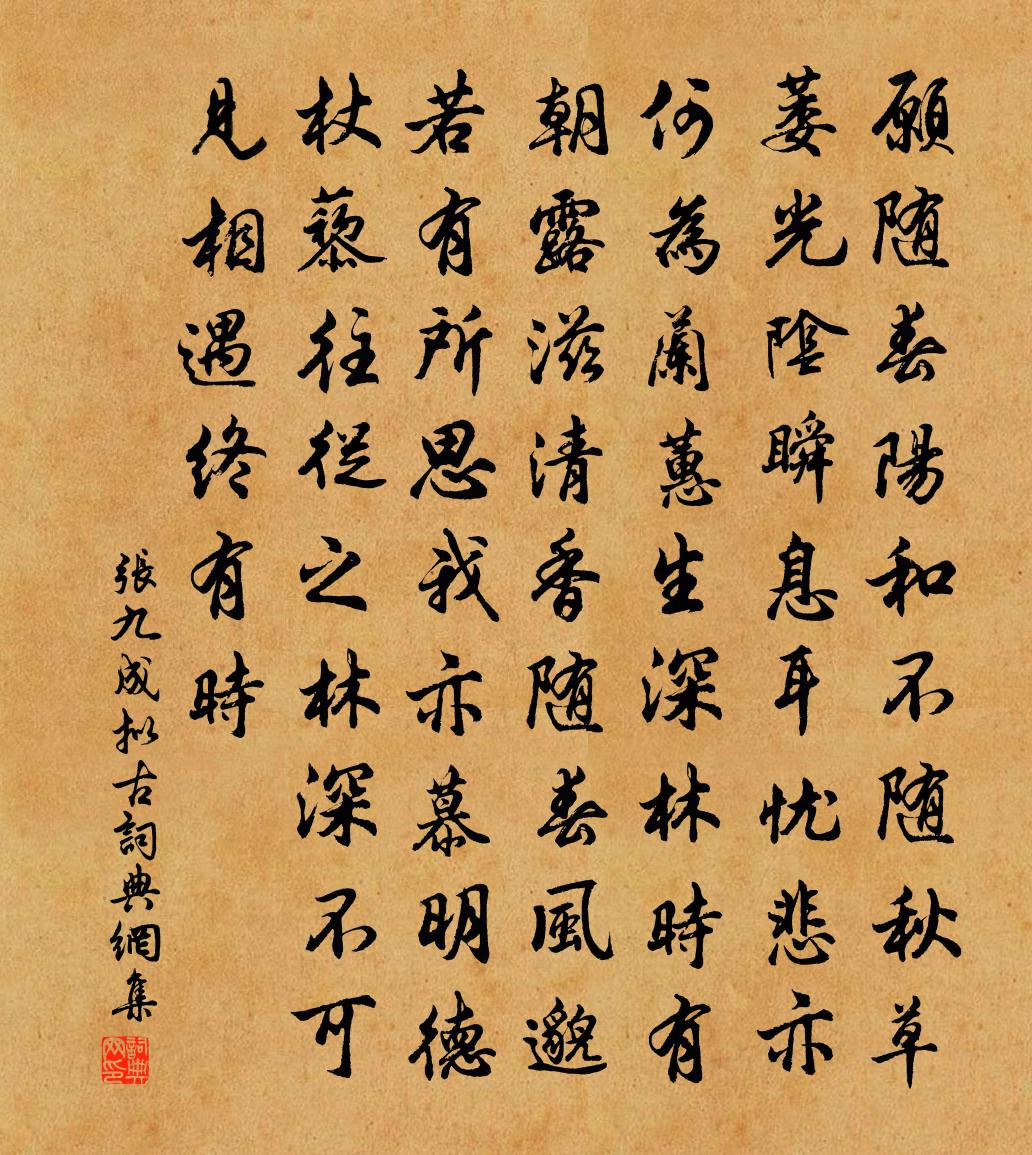 願随春陽和不随秋草
萎光陰瞬息耳忧悲亦
何為蘭蕙生深林時有
朝露滋清香随春風邈
若有所思我亦慕明德
杖藜往從之林深不可
見相遇終有時
張九成拟古詞典網集
詞典网印